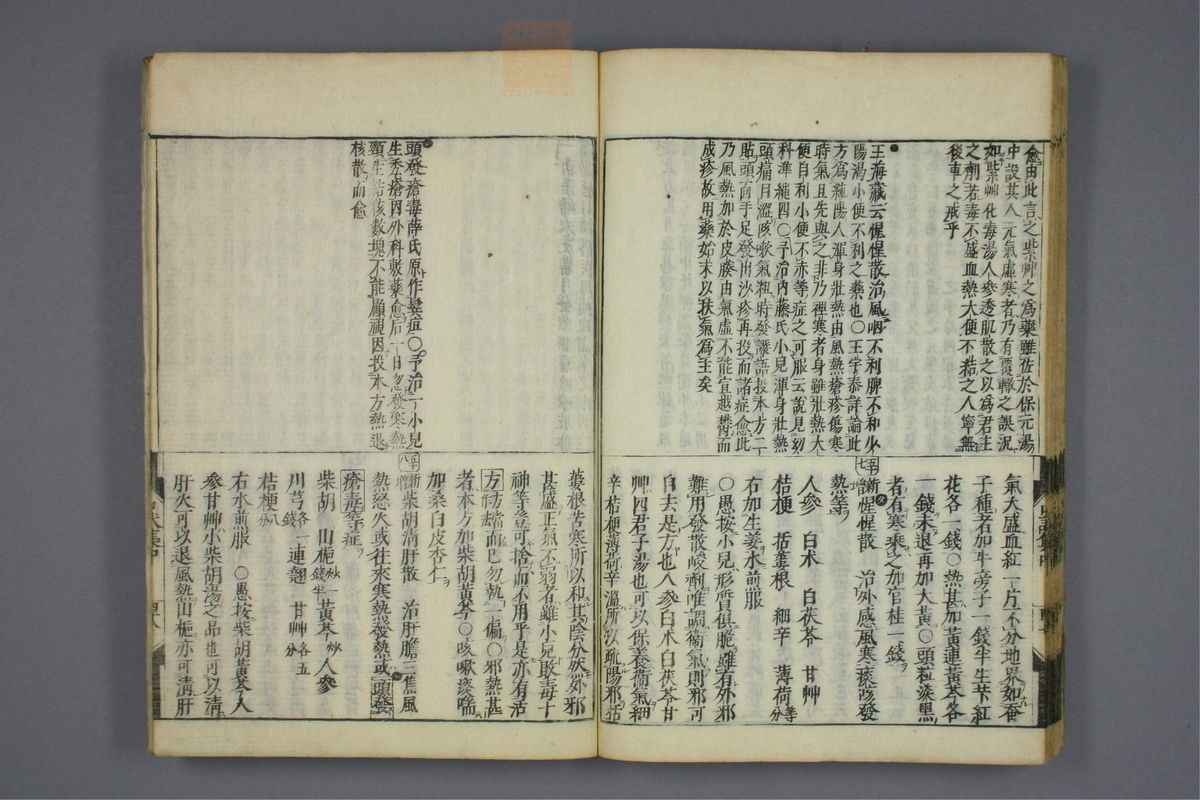 愈由此言之紫艸之爲藥雖佐於保元湯
中設其人元氣虛寒者乃有覆轍之誤況
如紫艸化毒湯人參透肌散之以爲君主
之劑若毒不盛血熱大便不秸之人寧無
後車之戒乎
王海藏云惺惺散治風咽不利脾不和少
陽渴小便不利之藥也〇王宇泰詳論此
方爲純陽人渾身壯熱由風熱瘡疹傷寒
時氣且先與之非乃裡寒者身雖壯熱大
便自利小便不赤等症之可服云說見幼
科準繩四〇予治內藤氏小兒渾身壯熱
頭痛目澀咳嗽氣粗時發譫語投本方二
貼頭面手足發出沙疹再投而諸症愈此
乃風熱加於皮膝由氣虛不能宣越欝而
成疹故用藥如末以扶氣爲主矣
氣大盛血紅一片不分地界如蚕
子種者加牛旁子一錢半生芐紅
花各一錢〇熱甚加黃連黃芩各
一錢未退再加大黃〇頭粒淡黑
者有寒乘之加官桂一錢
五十七 新增惺惺散 治外感風寒痰咳發
熱等
人參 白朮 白茯苓 甘艸
桔梗 栝蔞根 細辛 薄荷等分
右加生姜水煎服
〇愚按小兒形質俱脆雖有外邪
難用發散峻劑唯調衞氣則邪可
自去是方也人參白朮白茯苓甘
艸四君子湯也可以保養衞氣細
辛桔梗薄荷辛溫所以疏陽邪活
頭發瘡毒薛氏原作鬓疽〇予治一小兒
生禿瘡因外科敷藥愈后一日忽發寒熱
頸生結核數塊不能顧視因投本方熱退
核散而愈
蔞根苦寒所以和其陰分然外邪
甚盛正氣不弱者雖小兒敗毒十
神等豈可捨而不用乎是亦有活
方活譜而已勿執一偏〇邪熱甚
者本方加柴胡黃芩〇咳嗽痰喘
加桑白皮杏仁
五十八 新增柴胡清肝散 治肝膽三焦風
熱怒火或往來寒熱發熱或頭發
瘡毒等症
柴胡 山梔炒一錢半 黃芩炒 人參
川芎各一錢 連翹 甘艸各五分
桔梗八分
右水煎服 〇愚按柴胡黃芩人
參甘艸小柴胡湯之品也可以清
肝火可以退風熱山梔亦可清肝